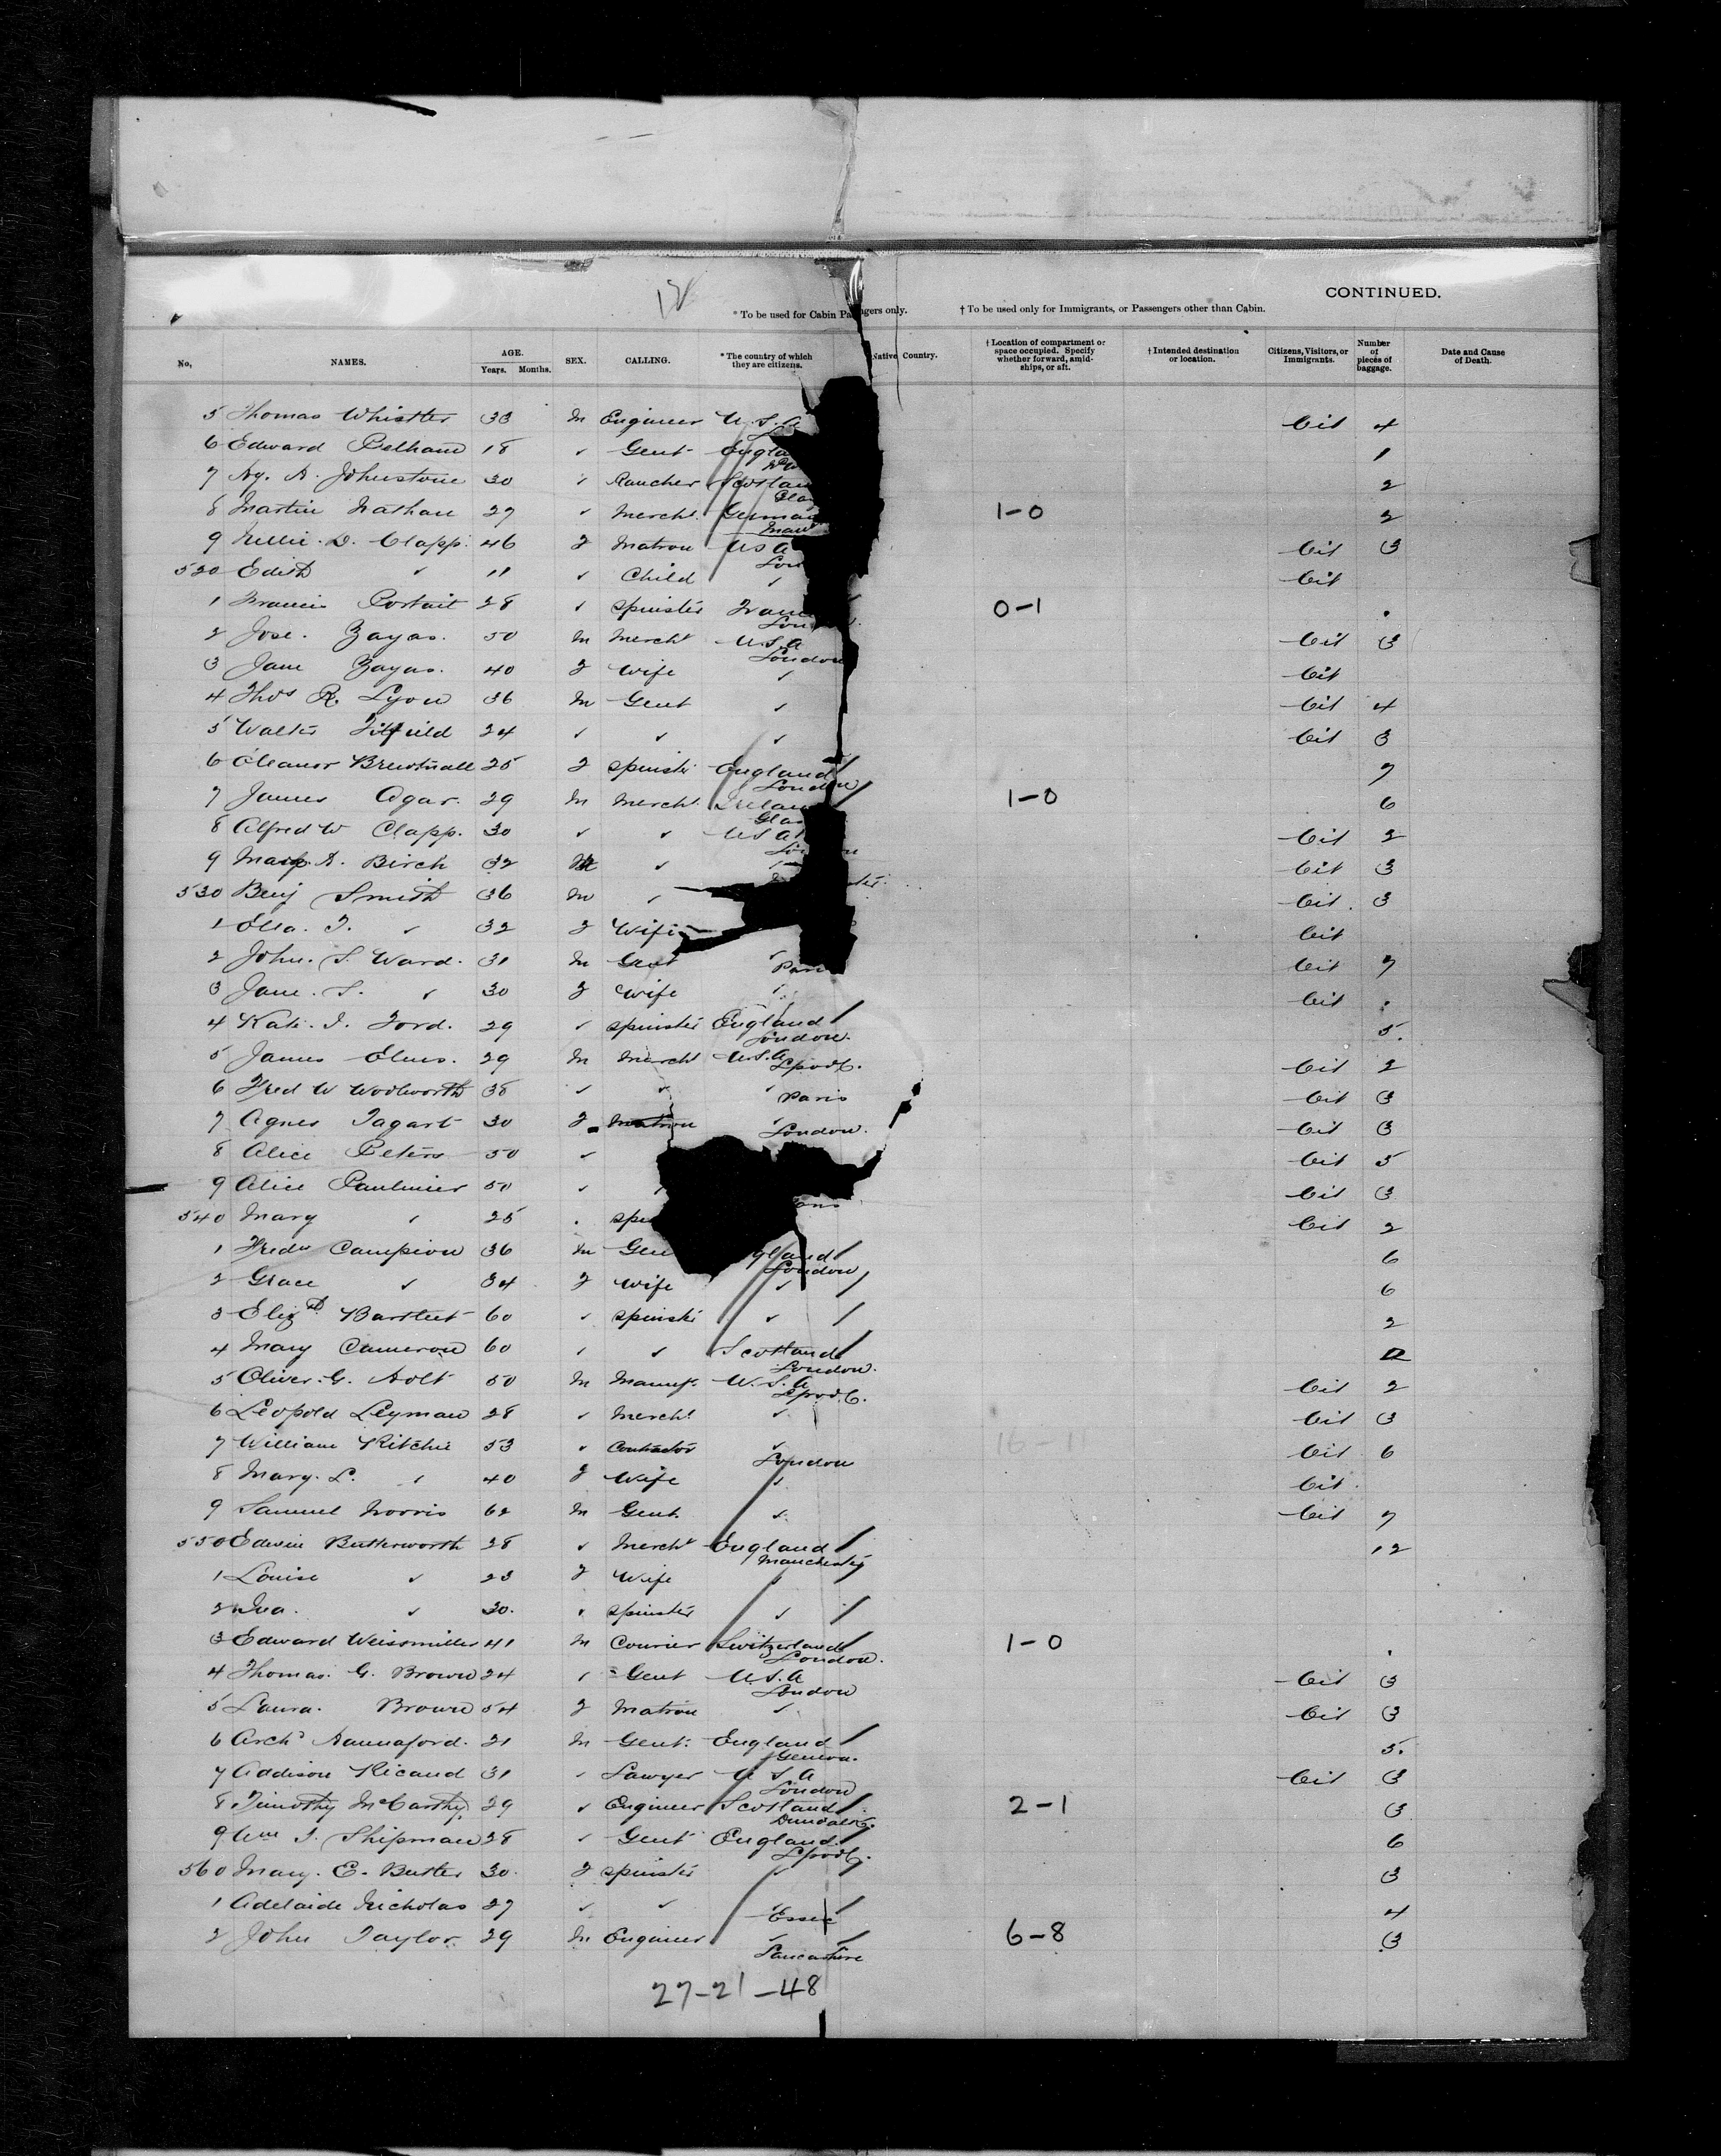 12
CONTINUED.
* To be used for Cabin Passengers only. † To be used only for Immigrants, or Passengers other than Cabin.
No, NAMES. AGE. Years. Months. SEX. CALLING. * The country of which they are citizens. Native Country. † Location of compartment or space occupied. Specify whether forward, amidships, or aft. † Intended destination or location. Citizens, Visitors, or Immigrants. Number of pieces of baggage. Date and Cause of Death.
5 Thomas Whistler 33 M Engineer U.S.A Cit 4
6 Edward Pelham 18 ✓ Gent 1
7 Hy. A. Johnstone 30 ✓ Rancher 2
8 Martin Nathan 27 ✓ Mercht. 1-0 2
9 Nellie. D. Clapp. 46 F Matron USA Cit 3
520 Edith ✓ 11 ✓ Child ✓ Cit
1 Francis Portait 28 ✓ Spinster 0-1
2 Jose. Zayas. 50 M Mercht U.S.A Cit 3
London
3 Jane Zayas. 40 F Wife ✓ Cit
4 Thos R. Lyon 36 M Gent ✓ Cit 4
5 Walter Titfield 24 ✓ ✓ ✓ Cit 3
6 Eleanor Brewtnall 25 F Spinster England 7
London
7 James Agar. 29 M Mercht. 1-0 6
8 Alfred W Clapp. 30 ✓ ✓ USA Cit 2
9 A. Birch 32 M ✓ Cit 3
530 Benj Smith 36 M ✓ Cit. 3
1 Ella. T. ✓ 32 F Wife Cit
2 John. S. Ward. 31 M Gent ✓ Cit 7
3 Jane. S. ✓ 30 F Wife ✓ Cit
4 Kate. I. Ford. 29 ✓ Spinster England 5.
London.
5 James Elms. 29 M Mercht U.S.A Cit 2
Lpool.
6 Fred W Woolworth 38 ✓ ✓ ✓ Cit 3
Paris
7 Agnes Tagart 30 F Matron ✓ Cit 3
London.
8 Alice Peters 50 ✓ Cit 5
9 Alice Paulmier 50 ✓ Cit 3
540 Mary ✓ 25 Cit 2
1 Fredk Campion 36 M 6
London
2 Grace ✓ 34 F Wife ✓ 6
3 Elizth Bartleet 60 ✓ Spinster ✓ 2
4 Mary Cameron 60 ✓ ✓ Scotland
London.
5 Oliver. G. Holt 50 M Manufr. U.S.A Cit 2
Lpool.
6 Leopold Leyman 28 ✓ Mercht ✓ Cit 3
7 William Ritchie 53 ✓ Contractor ✓ 16-11 Cit 6
London
8 Mary. L. ✓ 40 F Wife ✓ Cit.
9 Samuel Norris 62 M Gent. ✓ Cit 7
550 Edwin Butterworth 28 ✓ Mercht England 12
Manchester
1 Louise ✓ 23 F Wife ✓
2 Ina. ✓ 30. ✓ Spinster ✓
3 Edward Weissmiller 41 M Courier Switzerland 1-0
London.
4 Thomas. G. Brown 24 ✓ Gent U.S.A Cit 3
London
5 Laura. Brown 54 F Matron ✓ Cit 3
6 Archd Hannaford. 21 M Gent. England 5.
Geneva.
7 Addison Ricaud 31 ✓ Lawyer U S A Cit 3
London
8 Timothy McCarthy, 29 ✓ Engineer Scotland 2-1 3
Dundalk.
9 Wm T. Shipman 28 ✓ Gent England 6
Lpool.
560 Mary. E. Buster 30. F Spinster ✓ 3
1 Adelaide Nicholas 27 ✓ ✓ ✓ 4
Essex
2 John Taylor. 29 M Engineer ✓ 6-8 3
Lancashire
27-21-48